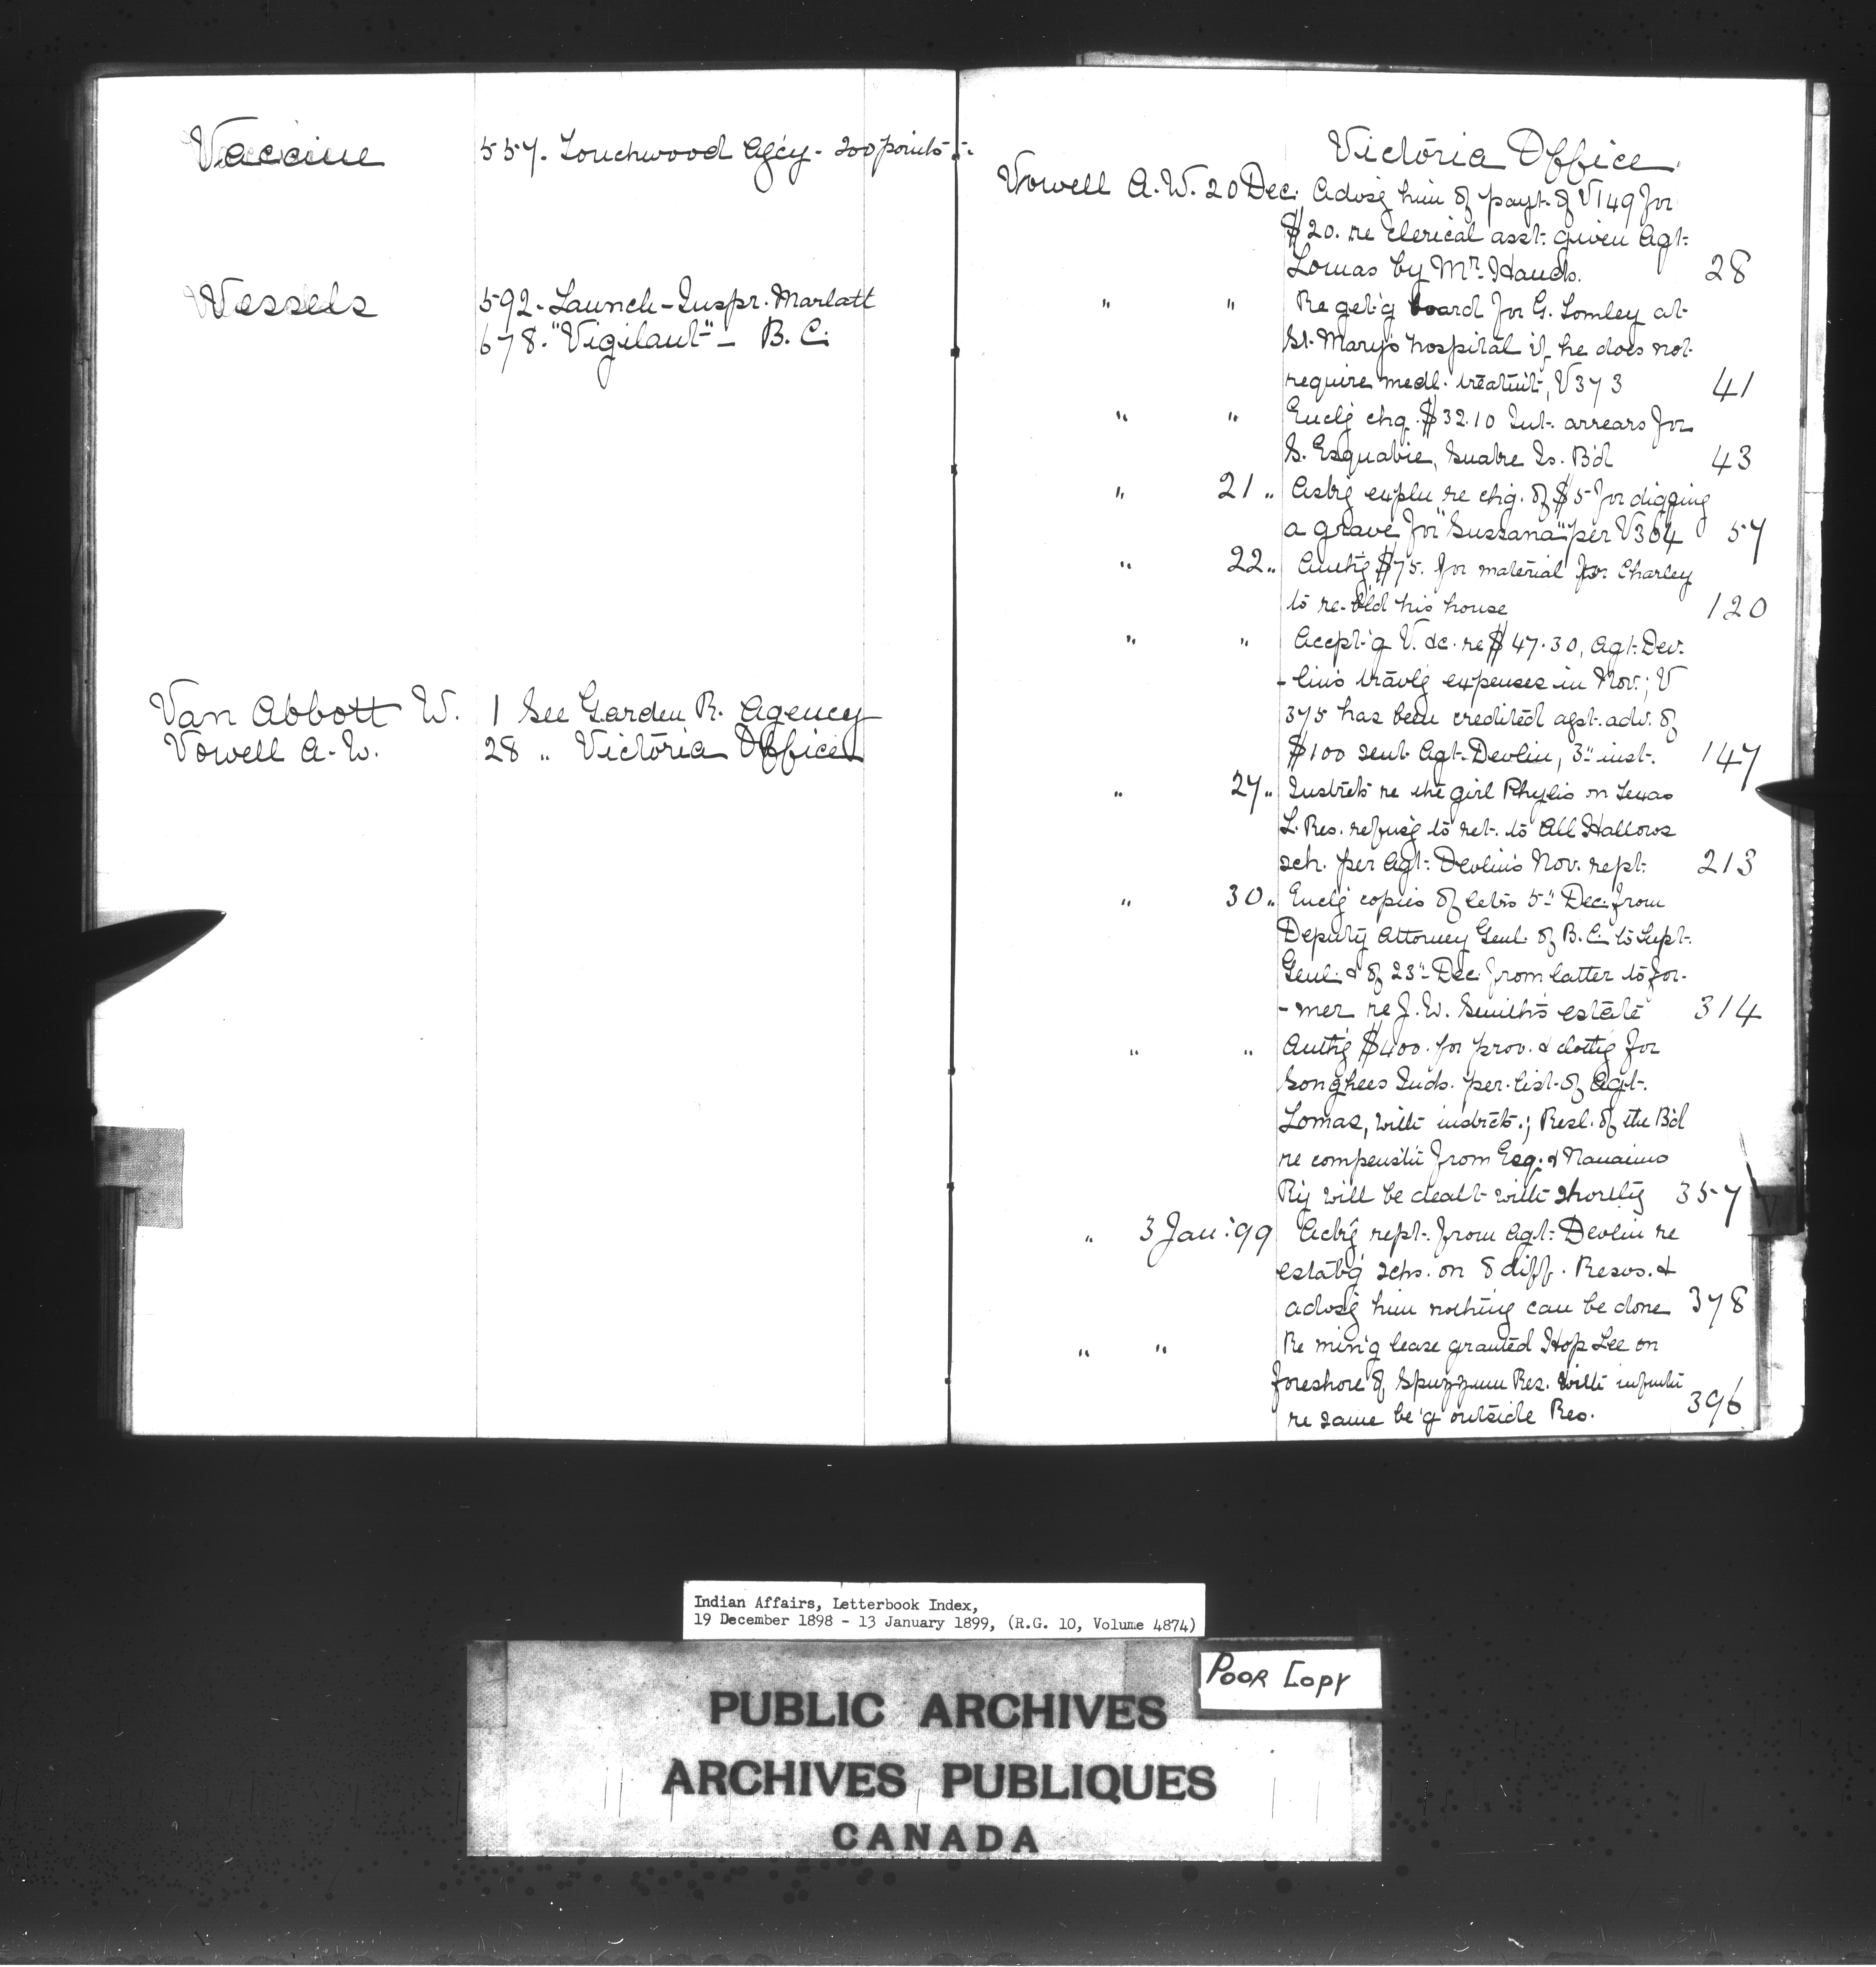 Vaccine 557. Touchwood Agcy - 200 points -
Vessels 592 - Launch - Inspr. Marlatt
678. "Vigilant" - B.C.
Van Abbott W. 1 See Garden R. Agency
Vowell A.W. 28 " Victoria Office
Victoria Office
Vowell A.W. 20 Dec. Advsg him of payt. of V149 for
$20. re clerical asst. given Agt.
Lomas by Mr. 28
" " Re get'g board for G. Lomley at
St. Mary's hospital if he does not
require medl. treatmt, V373 41
" " Enclg chq. $32.10 Int. arrears for
S. Is. B'd 43
" 21 " Askg expln re chg. of $5 for digging
a grave for "Sussana" per V304 57
" 22 " Authg $75. for material for Charley
to re-b'ld his house 120
" " Accept'g V. &c. re $47.30, Agt. Dev-
-lin's travlg expenses in Nov.; V
375 has been credited agst. adv. of
$100 sent Agt. Devlin, 3" inst. 147
" 27 " Instrcts re the girl Phylis on Texas
L. Res. refusg to ret. to All Hallows
sch. per Agt. Devlin's Nov. rept. 213
" 30 " Enclg copies of letrs 5" Dec. from
Deputy Attorney Genl. of B.C. to Supt.
Genl. & of 23" Dec. from latter to for-
-mer re J.W. Smith's estate 314
" " Authg $400. for prov. & clothg for
Songhees Inds. per list of Agt.
Lomas, with instrcts.; Resl. of the B'd
re compenstn from Esq. & Nanaimo
Ry will be dealt with shortly 357
" 3 Jan: 99 Ackg rept. from Agt. Devlin re
establg schs. on 8 diff. Resvs. &
advsg him nothing can be done 378
" " Re min'g lease granted Hop Lee on
foreshore of Spuzzum Res. with infmtn
re same be'g outside Res. 396
V
Indian Affairs, Letterbook Index,
19 December 1898 - 13 January 1899, (R.G. 10, Volume 4874)
POOR COPY
PUBLIC ARCHIVES
ARCHIVES PUBLIQUES
CANADA